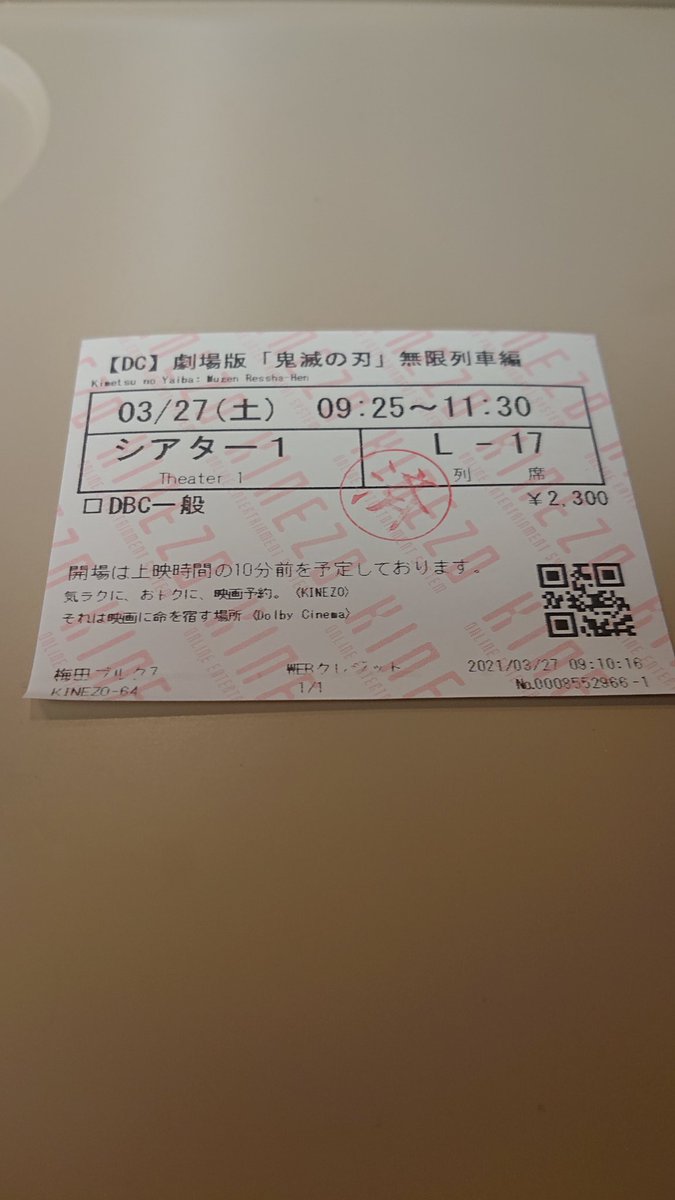 【DC】劇場版「鬼滅の刃」無限列車編
Kimetsu no Yaiba: Mugen Ressha-Hen
03/27(土) 09:25～11:30
シアター1 L - 17
Theater 1 列 席
□DBC一般 ¥2,300
済
開場は上映時間の10分前を予定しております。
気ラクに、おトクに、映画予約。〈KINEZO〉
それは映画に命を宿す場所〈Dolby Cinema〉
梅田ブルク7 WEBクレジット 2021/03/27 09:10:16
KINEZO-64 1/1 No.0008552966-1
KINEZO
ONLINE ENTERTAINMENT SYSTEM